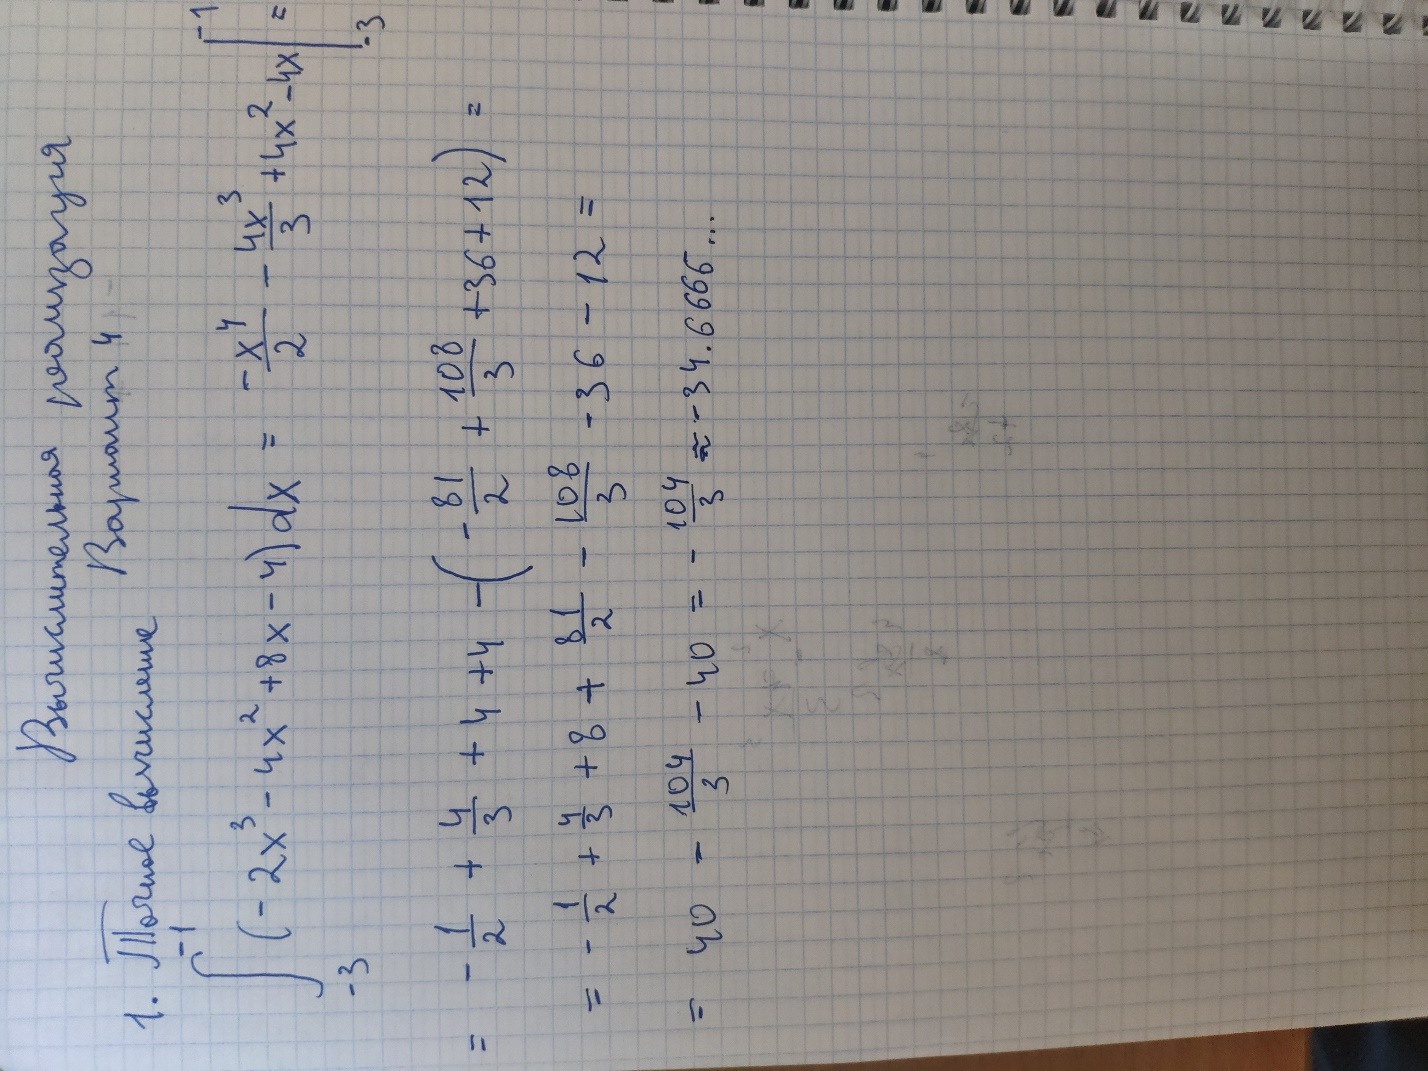 Вычислительная реализация
Вариант 4
1. Точное вычисление
∫_{-3}^{-1} (-2x³ - 4x² + 8x - 4)dx = -x⁴/2 - 4x³/3 + 4x² - 4x |_{-3}^{-1} =
= -1/2 + 4/3 + 4 + 4 - (-81/2 + 108/3 + 36 + 12) =
= -1/2 + 4/3 + 8 + 81/2 - 108/3 - 36 - 12 =
= 40 - 104/3 - 40 = -104/3 ≈ -34.6666...